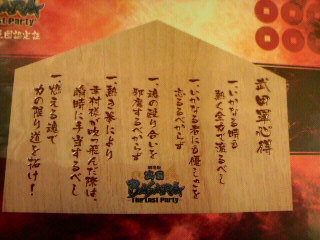 BASARA
The Last Party
武田軍心得
一、いかなる時も
熱く全力で漲るべし
一、いかなる者にも優しさを
忘るるべからず
一、魂の殴り合いを
邪魔するべからず
一、熱き拳により
幸村様が吹っ飛んだ際は、
瞬時に手当するべし
一、燃える魂で
力の限り道を拓け!
劇場版
戦国
BASARA
The Last Party